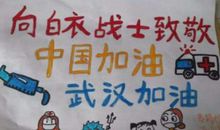 向白衣战士致敬
中国加油
武汉加油